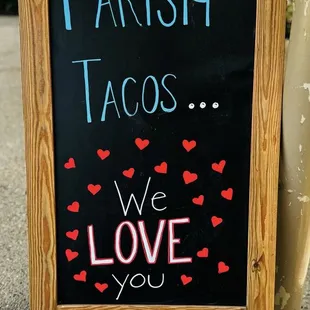 PARISH
TACOS...
We
LOVE
you